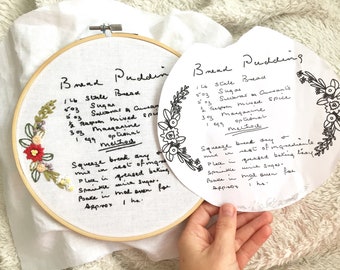 Bread Pudding
1 lb Stale Bread
5 oz Sugar
5 oz Sultanas or Currants
½ Teaspoon Mixed Spice
3 oz Margarine
1 egg optional
Method
Squeeze bread dry +
mix in rest of ingredients
Place in greased baking tray
Sprinkle with sugar.
Bake in mod oven for
Approx 1 hr.
Bread Pudding
1 lb Stale Bread
5 oz Sugar
5 oz Sultanas or Currants
½ Teaspoon Mixed Spice
3 oz Margarine
1 egg optional
Method
Squeeze bread dry +
mix in rest of ingredients
Place in greased baking tray
Sprinkle with sugar.
Bake in mod oven for
Approx 1 hr.